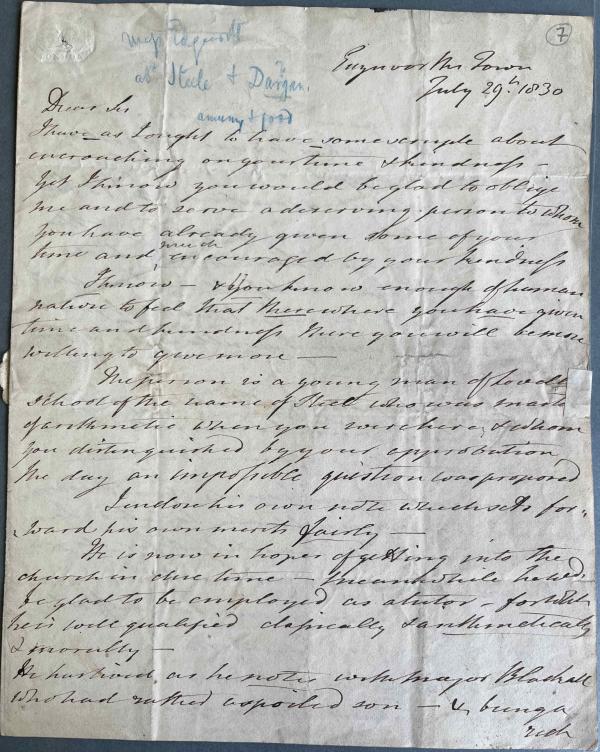 7
Miss Edgeworth
abt Steele & Dargan.
amusing & good
Edgeworths Town
July 29th 1830
Dear Sir
I have as I ought to have some scruple about
encroaching on your time & kindness –
yet I know you would be glad to oblige
me and to serve a deserving person to whom
you have already given some of your
time and much encouraged by your kindness
I know – & you know enough of human
nature to feel that there where you have given
time and kindness there you will be more
willing to give more —
The person is a young man of Lovell
school of the name of Steele who was master
of arithmetic when you were here, & whom
you distinguished by your approbation
the day an impossible question was proposed
I enclose his own note which sets for-
ward his own merits fairly —
He is now in hopes of getting into the
church in due time – Meanwhile he wd.
be glad to be employed as a tutor – for which
he is well qualified classically & arithmetically
& morally —
He has lived as he notes with Major Blackall
who had rather a spoiled son – &
rich